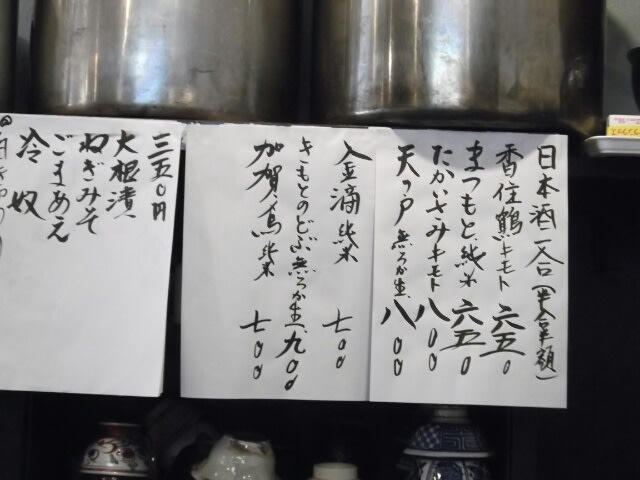 日本酒一合(半合半額)
香住鶴キモト 六五〇
まつもと純米 六五〇
たかいさみキモト 八〇〇
天の戸 無ろか生 八〇〇
金滴 純米 七〇〇
きもとのどぶ無ろか生 九〇〇
加賀鳶 純米 七〇〇
三五〇円
大根漬
ねぎみそ
ごまあえ
冷奴